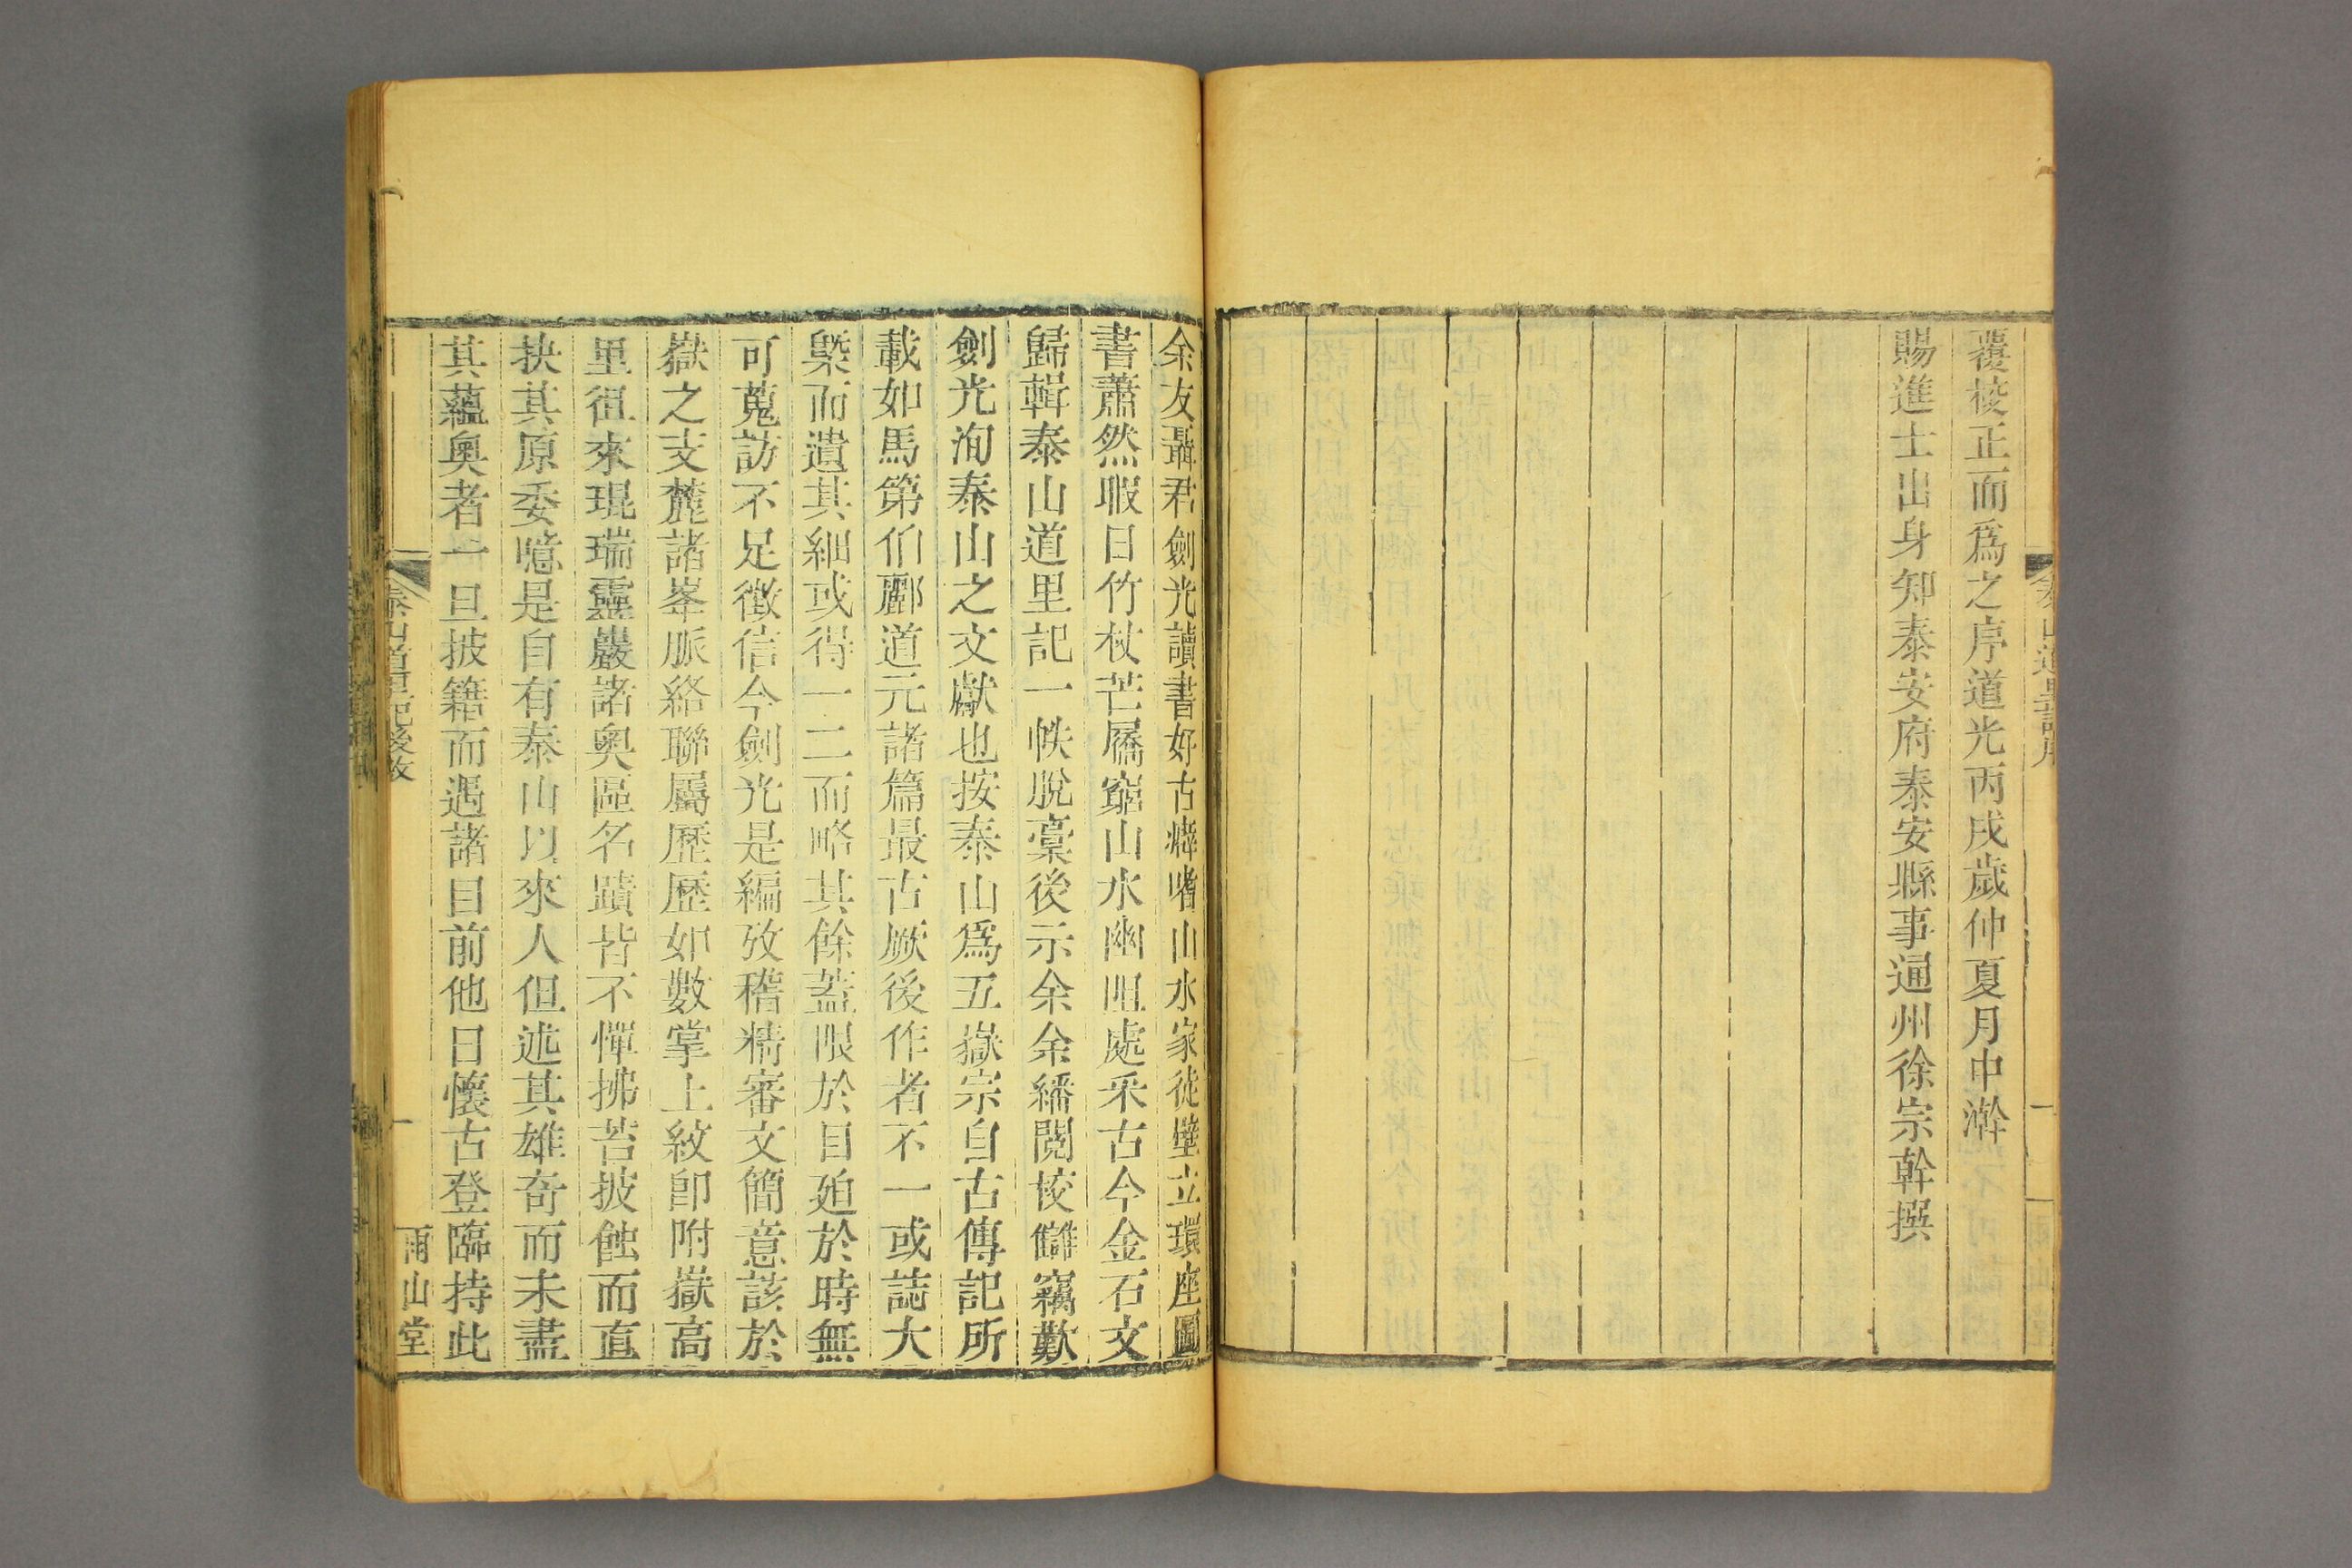 覆校正而爲之序道光丙戌歲仲夏月中澣
賜進士出身知泰安府泰安縣事通州徐宗幹撰
余友聶君劍光讀書好古癖嗜山水家徒壁立環座圖
書蕭然暇日竹杖芒屩窮山水幽阻處采古今金石文
歸輯泰山道里記一帙脫稾後示余余繙閱校讎竊歎
劍光洵泰山之文獻也按泰山爲五嶽宗自古傳記所
載如馬第伯酈道元諸篇最古厥後作者不一或誌大
槩而遺其細或得一二而略其餘葢限於目廹於時無
可蒐訪不足徵信今劍光是編攷稽精審文簡意該於
嶽之支麓諸峯脈絡聯屬歷歷如數掌上紋卽附嶽高
里徂來琨瑞靈巖諸奧區名蹟皆不憚拂苔披蝕而直
抉其原委噫是自有泰山以來人但述其雄奇而未盡
其蘊奧者一旦披籍而遇諸目前他日懷古登臨持此
泰山道里記後敘
一
雨山堂